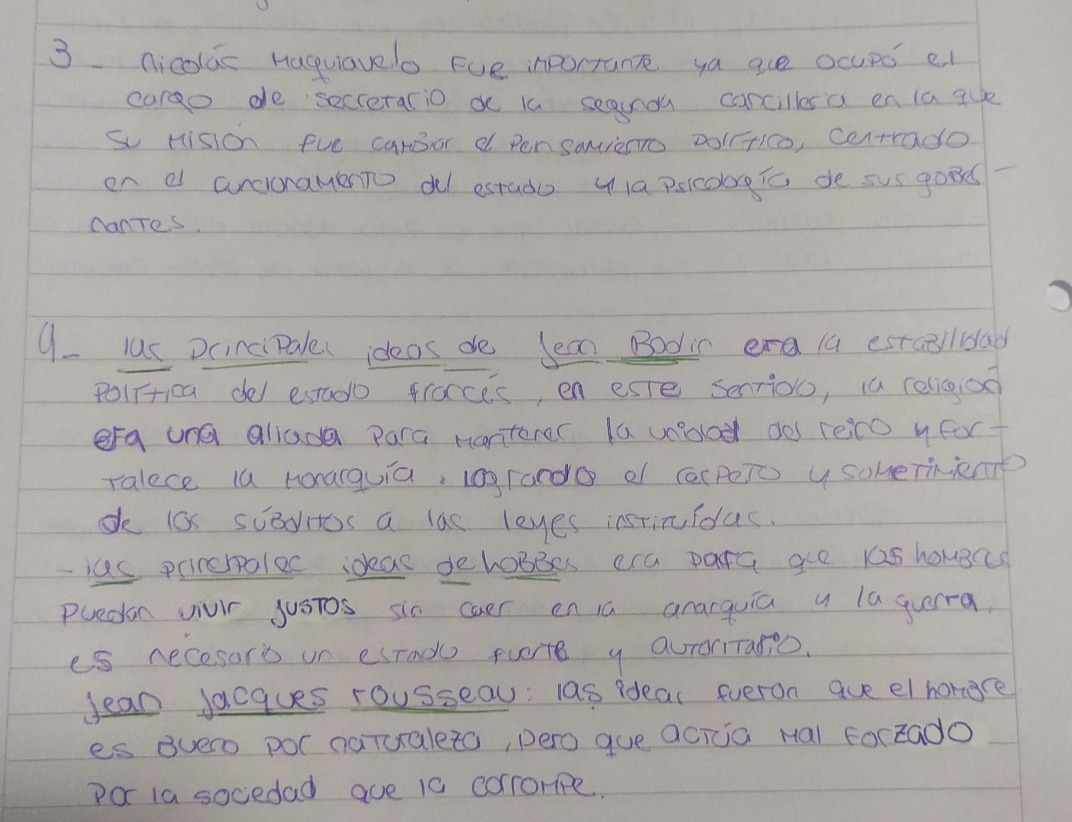 3- Nicolás Maquiavelo fue importante ya que ocupó el
cargo de secretario de la segunda cancillería en la que
su misión fue cambiar el pensamiento político, centrado
en el uncionamento del estado y la psicología de sus gober-
nantes.
4- las principales ideas de Jean Bodin era la estabilidad
política del estado francés, en este sentido, la religión
era una aliada para mantener la unidad del reino y for-
talece la monarquía, logrando el respeto y sometimiento
de los súbditos a las leyes instituídas.
- las principales ideas de hobbes era para que los hombres
puedan vivir justos sin caer en la anarquía y la guerra,
es necesario un estado fuerte y autoritario.
Jean Jacques rousseau: las ideas fueron que el hombre
es bueno por naturaleza, pero que actúa mal forzado
por la sociedad que la corrompe.